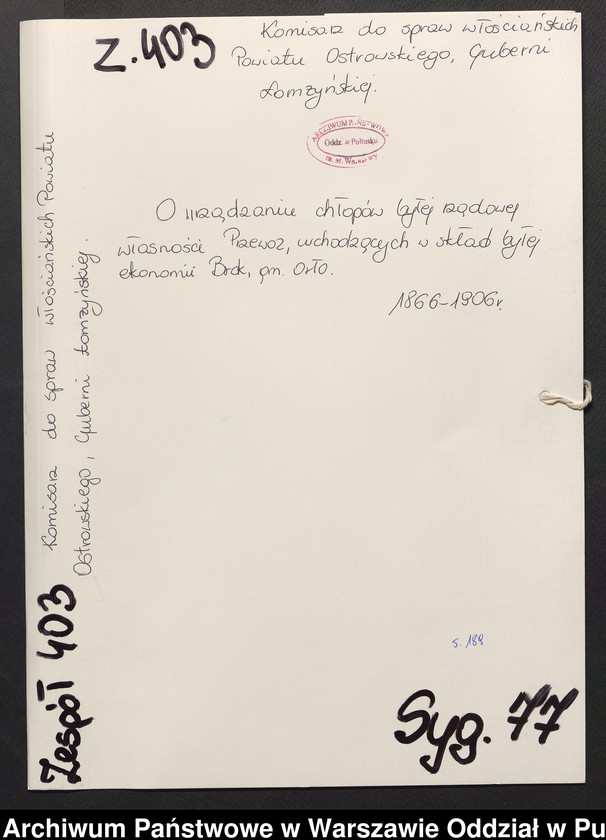 Z. 403
Komisarz do spraw włościańskich
Powiatu Ostrowskiego, Guberni
Łomżyńskiej.
ARCHIWUM PAŃSTWOWE
Oddz. w Pułtusku
m. st. Warszawy
O urządzaniu chłopów byłej rządowej
własności Przewoz, wchodzących w skład byłej
ekonomii Brok, gm. Orło.
1866-1906r.
Komisarz do spraw włościańskich Powiatu
Ostrowskiego, Guberni Łomżyńskiej.
Zespół 403
s. 189
Syg. 77
Archiwum Państwowe w Warszawie Oddział w Pu